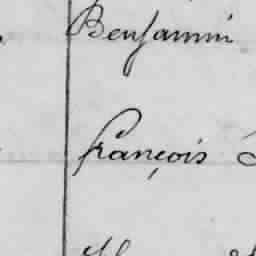 Benjamin
françois